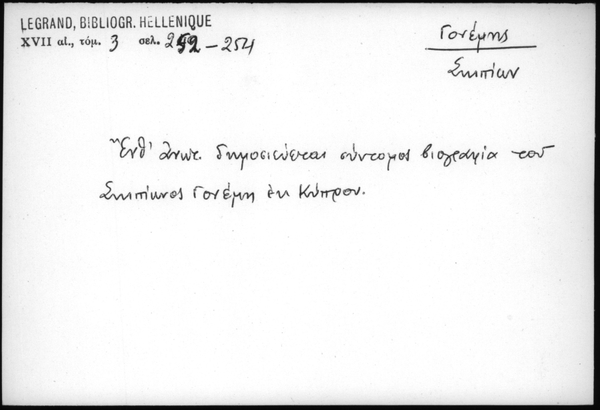 LEGRAND, BIBLIOGR. HELLENIQUE
XVII αἰ., τόμ. 3 σελ. 252-254
Γονέμης
Σκιπίων
Ἔνθ' ἀνωτ. δημοσιεύεται σύντομος βιογραφία τοῦ
Σκιπίωνος Γονέμη ἐκ Κύπρου.